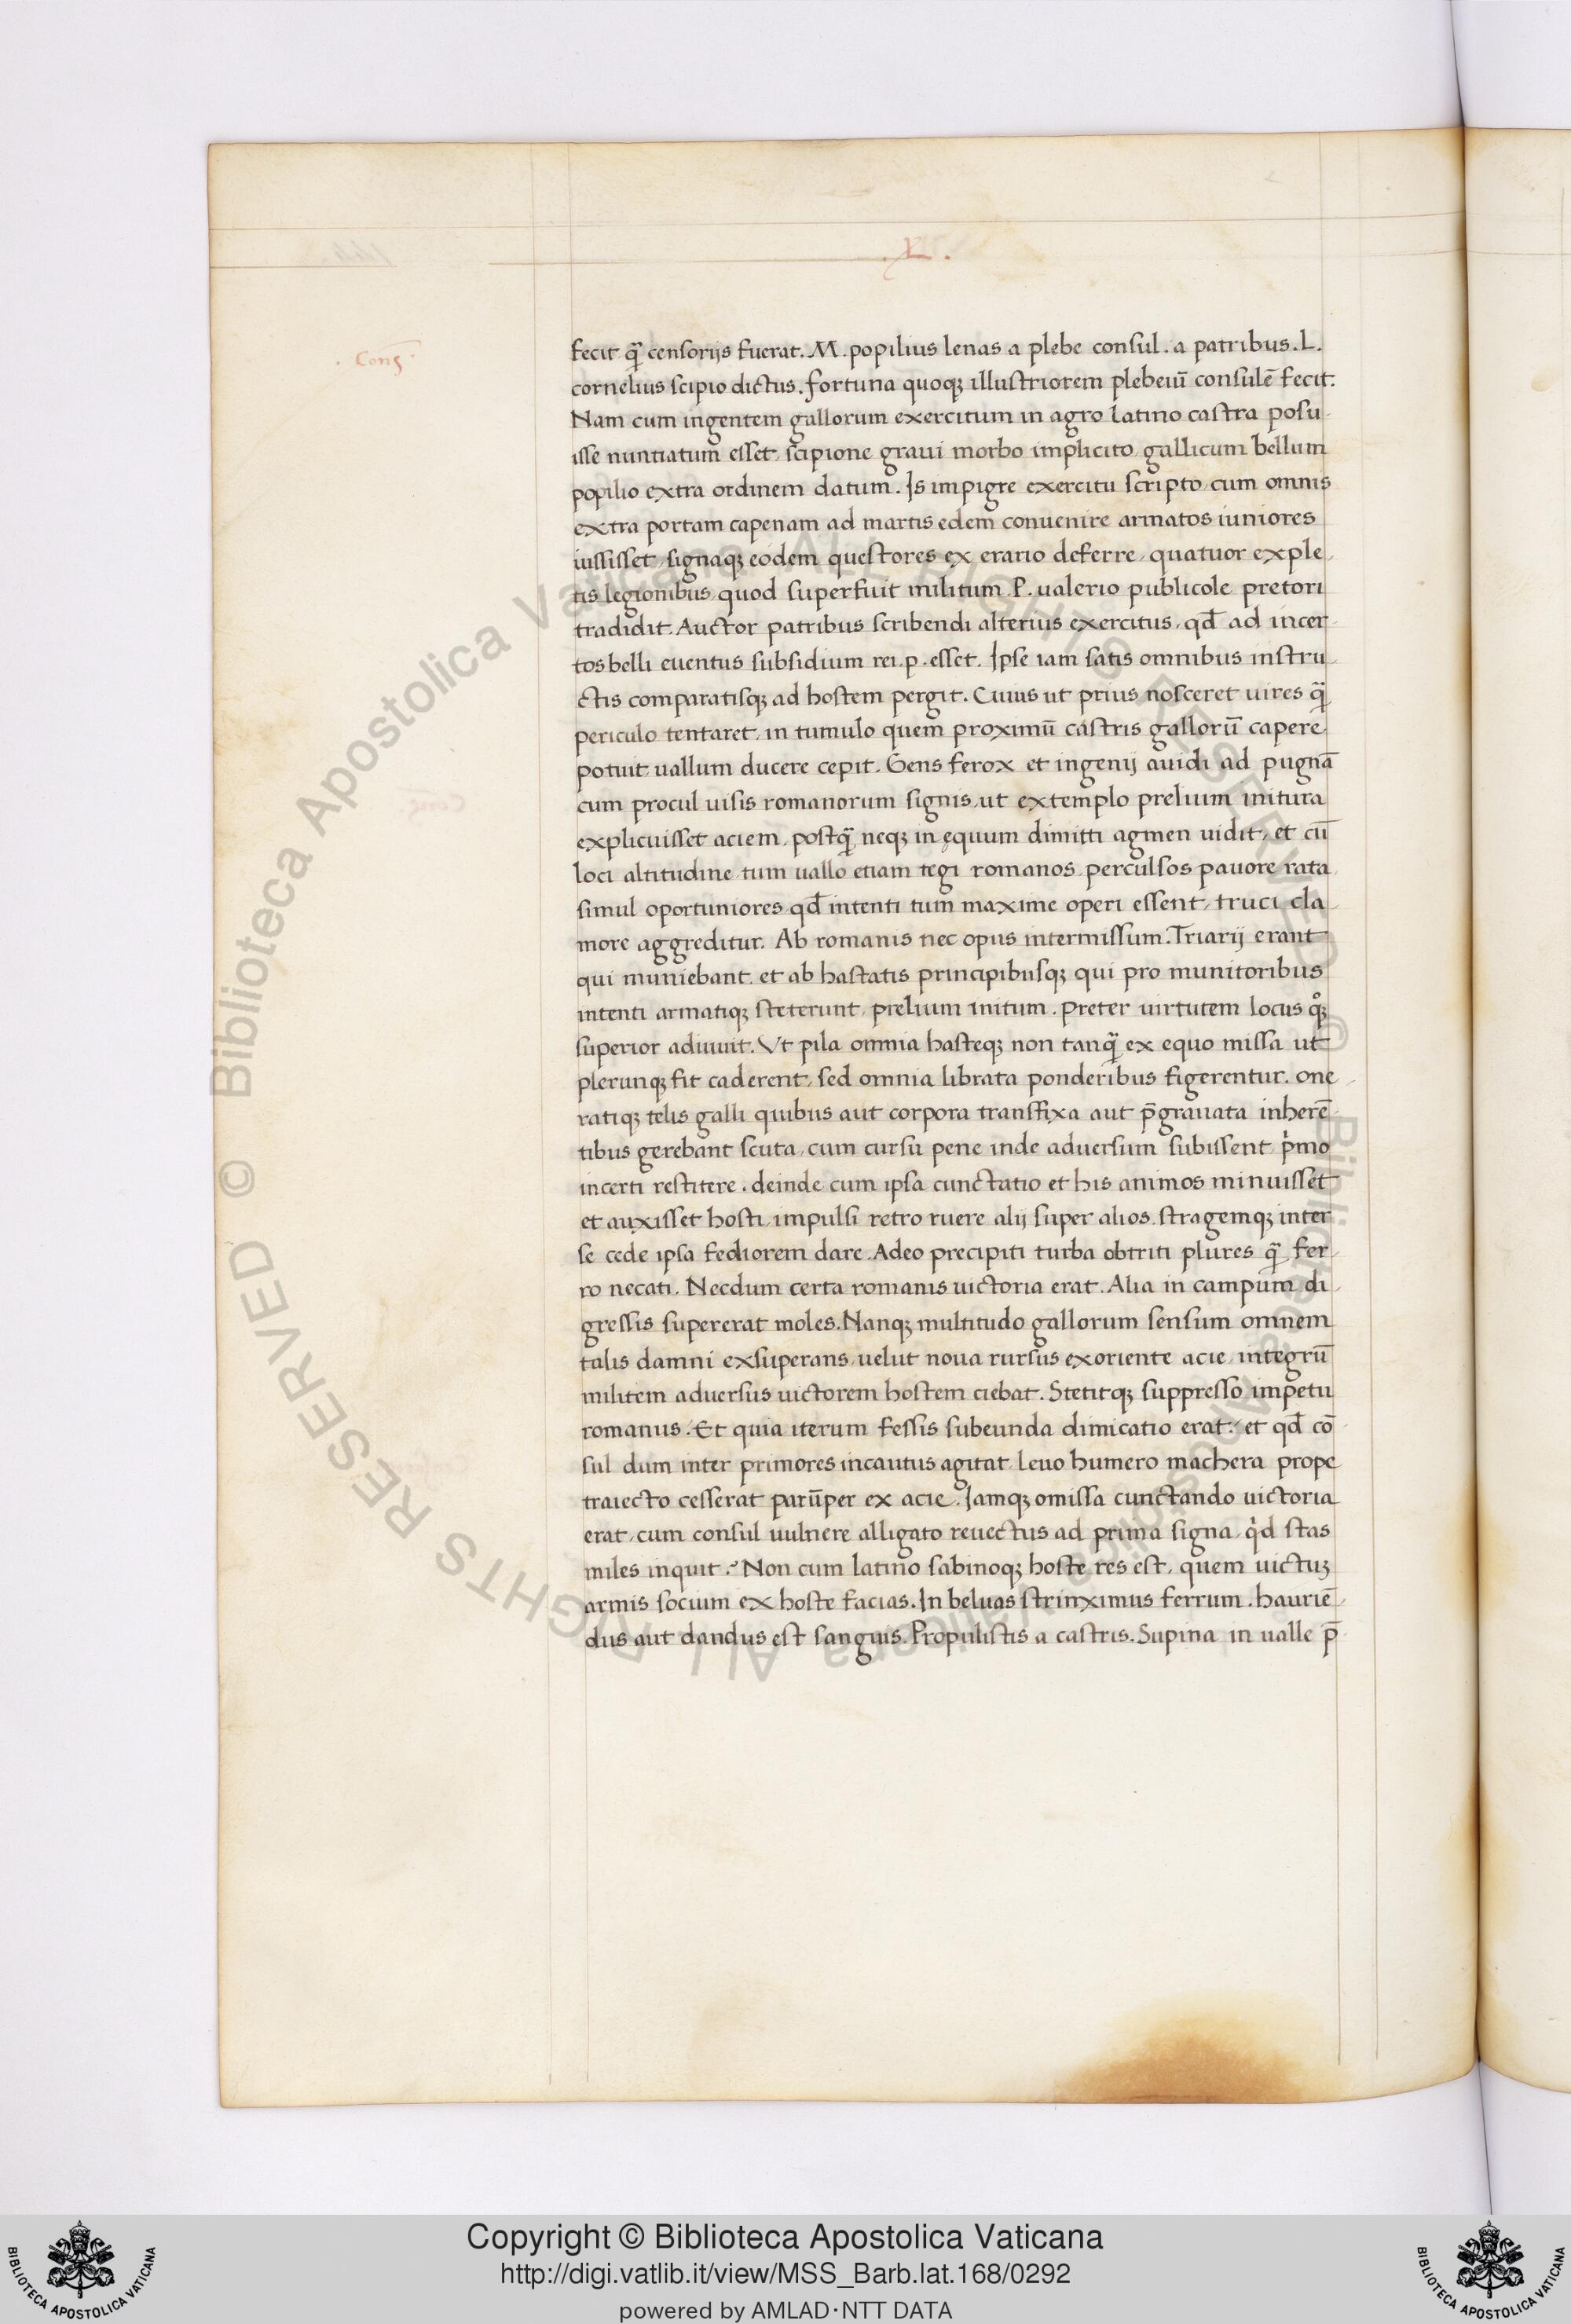 .L.
. Conſ .
fecit qᷓ cenſorijs fuerat. M. popilius lenas a plebe conſul. a patribus. L.
cornelius ſcipio dictus. fortuna quoqꝫ illuſtriorem plebeiū conſulē fecit.
Nam cum ingentem gallorum exercitum in agro latino caſtra poſu-
iſſe nuntiatum eſſet, ſcipione graui morbo implicito, gallicum bellum
popilio extra ordinem datum. Is impigre exercitu ſcripto, cum omnis
extra portam capenam ad martis edem conuenire armatos iuniores
iuſſiſſet, ſignaqꝫ eodem queſtores ex erario deferre, quatuor exple-
tis legionibus, quod ſuperfuit militum P. ualerio publicole pretori
tradidit. Auctor patribus ſcribendi alterius exercitus, qđ ad incer-
tos belli euentus ſubſidium rei. p. eſſet. Ipſe iam ſatis omnibus inſtru-
ctis comparatiſqꝫ ad hoſtem pergit. Cuius ut prius noſceret uires qᷓ
periculo tentaret, in tumulo quem proximū caſtris gallorū capere
potuit uallum ducere cepit. Gens ferox et ingenij auidi ad pugnā
cum procul uiſis romanorum ſignis, ut extemplo prelium initura
explicuiſſet aciem, poſtqᷓ neqꝫ in ęquum dimitti agmen uidit, et cū
loci altitudine tum uallo etiam tegi romanos, perculſos pauore rata
ſimul oportuniores qđ intenti tum maxime operi eſſent, truci cla
more aggreditur. Ab romanis nec opus intermiſſum. Triarij erant
qui muniebant. et ab haſtatis principibuſqꝫ qui pro munitoribus
intenti armatiqꝫ ſteterunt, prelium initum. preter uirtutem locus qͦꝫ
ſuperior adiuuit. Vt pila omnia haſteqꝫ non tanqᷓ ex equo miſſa ut
plerunqꝫ fit caderent, ſed omnia librata ponderibus figerentur. one-
ratiqꝫ telis galli quibus aut corpora tranſfixa aut p̄grauata inherē-
tibus gerebant ſcuta, cum curſu pene inde aduerſum ſubiſſent pⁱmo
incerti reſtitere. deinde cum ipſa cunctatio et his animos minuiſſet
et auxiſſet hoſti, impulſi retro ruere alij ſuper alios. ſtragemqꝫ inter
ſe cede ipſa fediorem dare. Adeo precipiti turba obtriti plures qᷓ fer-
ro necati. Necdum certa romanis uictoria erat. Alia in campum di-
greſſis ſupererat moles. Nanqꝫ multitudo gallorum ſenſum omnem
talis damni exſuperans, uelut noua rurſus exoriente acie, integrū
militem aduerſus uictorem hoſtem ciebat. Stetitqꝫ ſuppreſſo impetu
romanus. Et quia iterum feſſis ſubeunda dimicatio erat. et qđ cō-
ſul dum inter primores incautus agitat leuo humero machera prope
traiecto ceſſerat parūper ex acie. Iamqꝫ omiſſa cunctando uictoria
erat, cum conſul uulnere alligato reuectus ad prima ſigna, qⁱd ſtas
miles inquit? Non cum latino ſabinoqꝫ hoſte res eſt, quem uictuꝫ
armis ſocium ex hoſte facias. In beluas ſtrinximus ferrum. hauriē-
dus aut dandus eſt ſanguis. Propuliſtis a caſtris. Supina in ualle p̄
© Biblioteca Apostolica Vaticana ALL RIGHTS RESERVED © Biblioteca Apostolica Vaticana ALL RIGHTS RESERVED
Copyright © Biblioteca Apostolica Vaticana
http://digi.vatlib.it/view/MSS_Barb.lat.168/0292
powered by AMLAD·NTT DATA
BIBLIOTECA APOSTOLICA VATICANA
BIBLIOTECA APOSTOLICA VATICANA